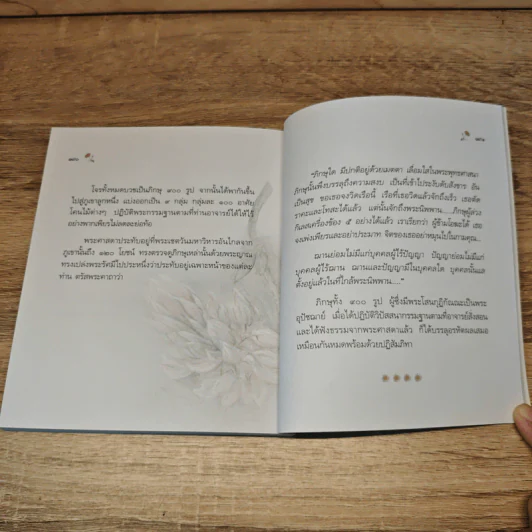 โจรทั้งหมดบวชเป็นภิกษุ ๙๐๐ รูป จากนั้นได้พากันขึ้น
ไปสู่ภูเขาลูกหนึ่ง แบ่งออกเป็น ๙ กลุ่ม กลุ่มละ ๑๐๐ อาศัย
โคนไม้ต่างๆ ปฏิบัติพระกรรมฐานตามที่ท่านอาจารย์ได้ให้ไว้
อย่างพากเพียรไม่ลดละย่อท้อ
พระศาสดาประทับอยู่ที่พระเชตวันมหาวิหารอันไกลจาก
ภูเขานั้นถึง ๑๒๐ โยชน์ ทรงตรวจดูภิกษุเหล่านั้นด้วยพระญาณ
ทรงเปล่งพระรัศมีไปประหนึ่งว่าประทับอยู่เฉพาะหน้าของแต่ละ
ท่าน ตรัสพระคาถาว่า
"ภิกษุใด มีปกติอยู่ด้วยเมตตา เลื่อมใสในพระพุทธศาสนา
ภิกษุนั้นพึงบรรลุถึงความสงบ เป็นที่เข้าไประงับดับสังขาร อัน
เป็นสุข ขอเธอจงวิดเรือนี้ เรือที่เธอวิดแล้วจักถึงเร็ว เธอตัด
ราคะและโทสะได้แล้ว แต่นั้นจักถึงพระนิพพาน....ภิกษุผู้ล่วง
กิเลสเครื่องข้อง ๕ อย่างได้แล้ว เราเรียกว่า ผู้ข้ามโอฆะได้ เธอ
จงเพ่งเพียรและอย่าประมาท จิตของเธออย่าหมุนไปในกามคุณ...
ฌานย่อมไม่มีแก่บุคคลผู้ไร้ปัญญา ปัญญาย่อมไม่มีแก่
บุคคลผู้ไร้ฌาน ฌานและปัญญามีในบุคคลใด บุคคลนั้นแล
ตั้งอยู่แล้วในที่ใกล้พระนิพพาน...."
ภิกษุทั้ง ๙๐๐ รูป ผู้ซึ่งมีพระโสณกุฏิกัณณะเป็นพระ
อุปัชฌาย์ เมื่อได้ปฏิบัติวิปัสสนากรรมฐานตามที่อาจารย์สั่งสอน
และได้ฟังธรรมจากพระศาสดาแล้ว ก็ได้บรรลุอรหัตผลเสมอ
เหมือนกันหมดพร้อมด้วยปฏิสัมภิทา